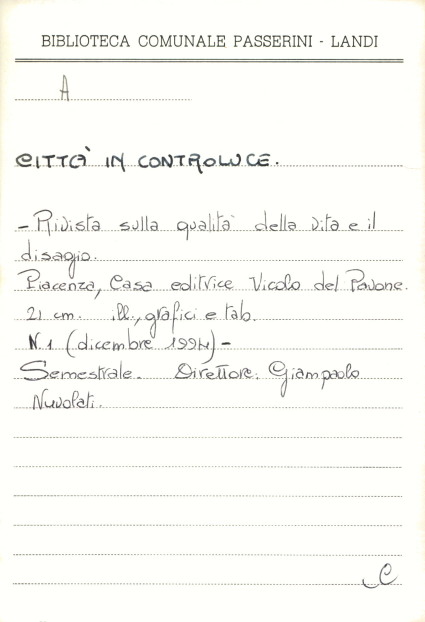 BIBLIOTECA COMUNALE PASSERINI - LANDI
A
CITTÀ IN CONTROLUCE.
- Rivista sulla qualità della vita e il
disagio.
Piacenza, Casa editrice Vicolo del Pavone.
21 cm. ill., grafici e tab.
N. 1 (dicembre 1994) -
Semestrale. Direttore: Giampaolo
Nuvolati.
C